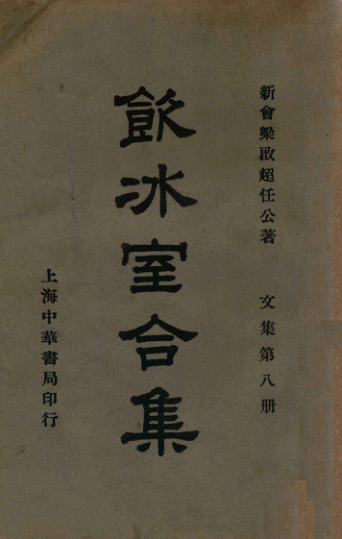 新會梁啟超任公著 文集第八册
飲冰室合集
上海中華書局印行